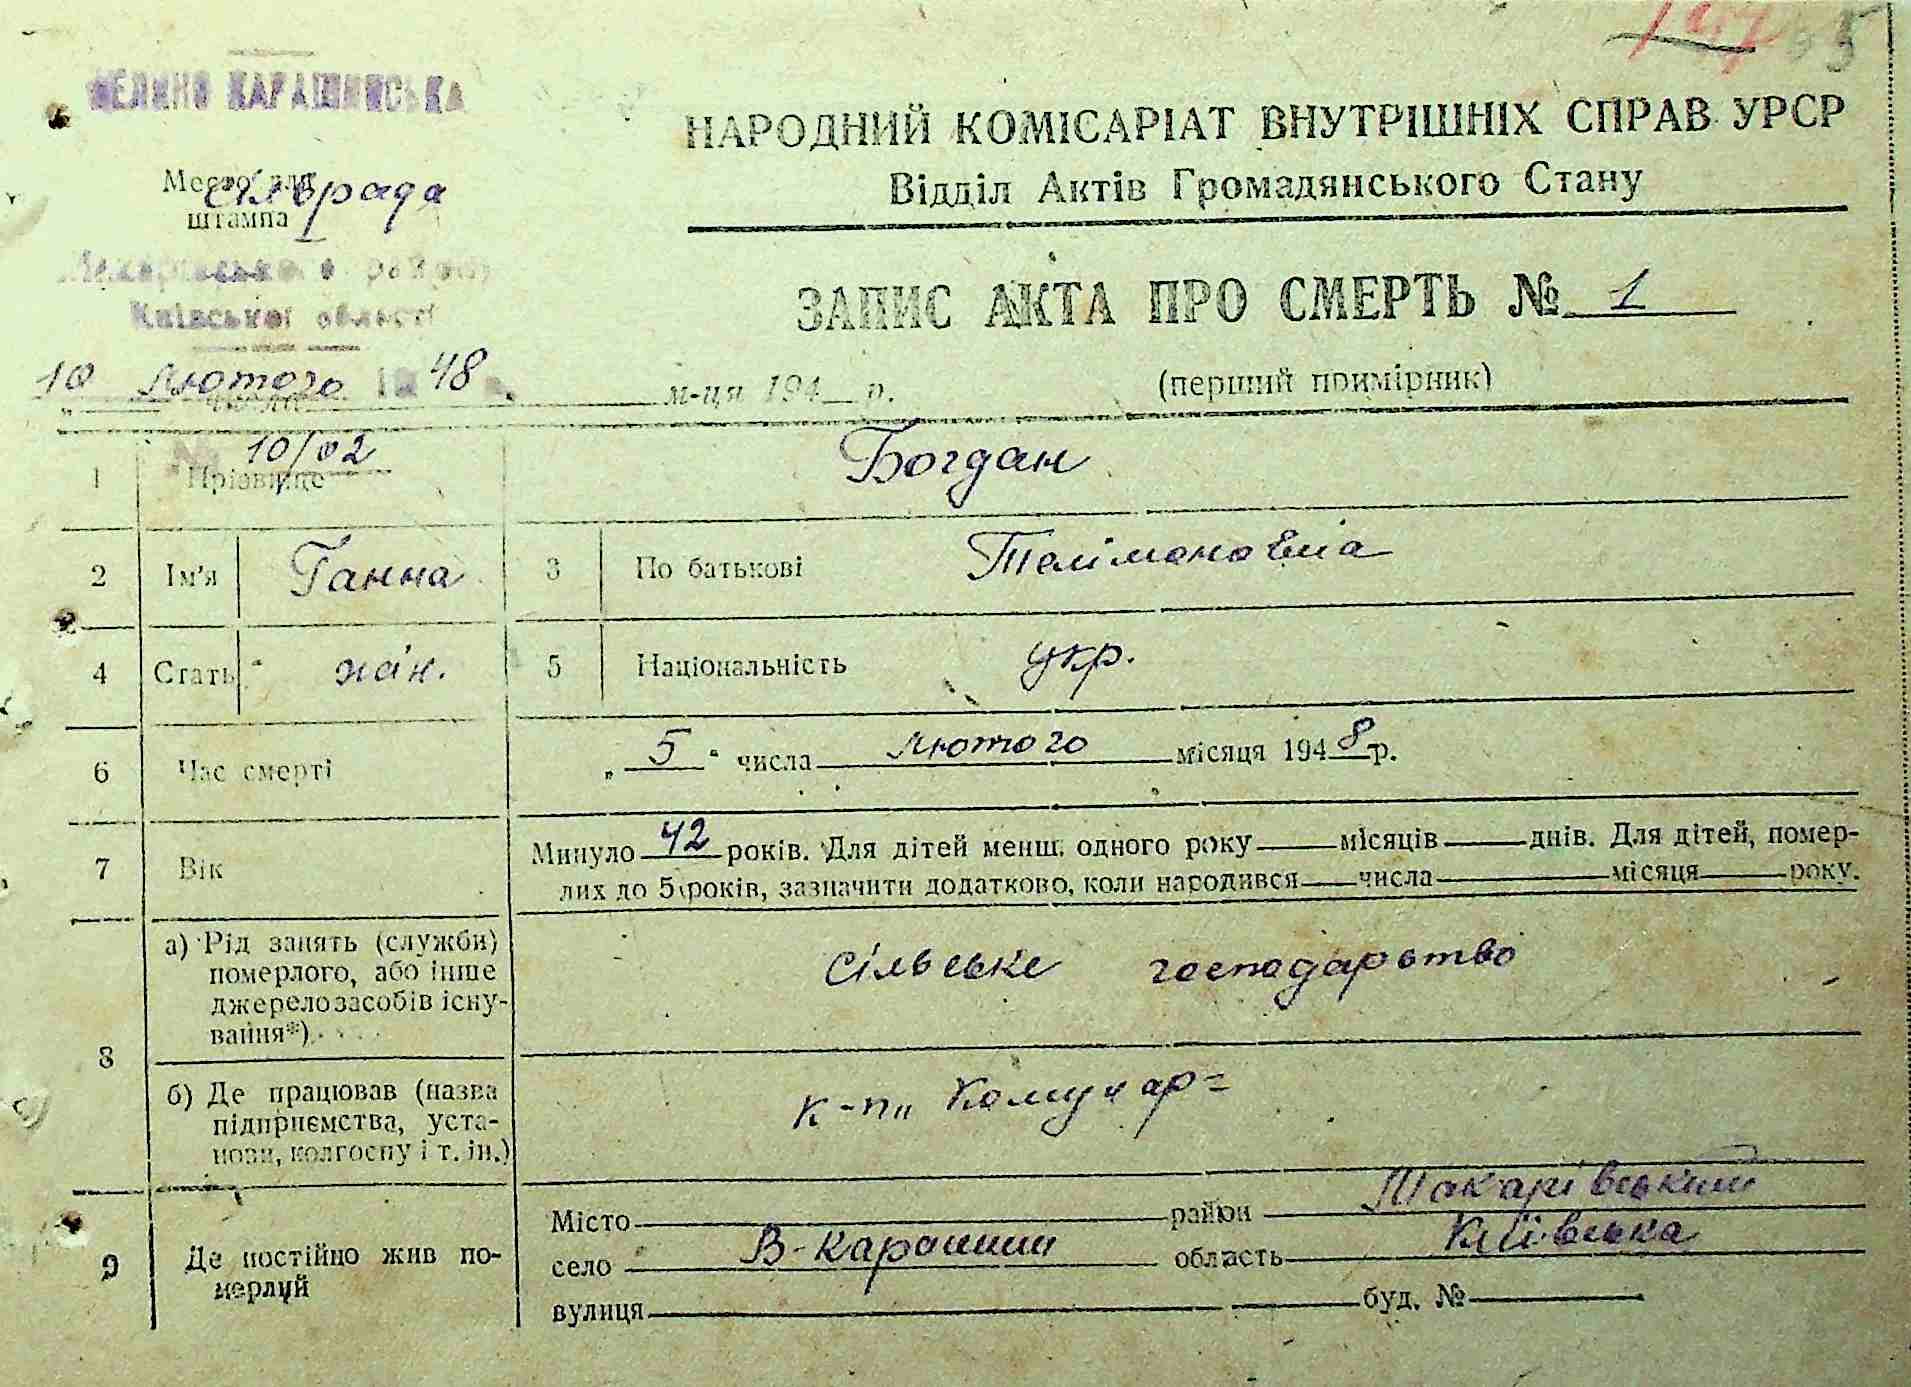 ВЕЛИКО КАРАШИНСЬКА
Место для
штампа
сільрада
Макарівського району
Київської області
10 лютого 1948 р.
10/02
НАРОДНИЙ КОМІСАРІАТ ВНУТРІШНІХ СПРАВ УРСР
Відділ Актів Громадянського Стану
ЗАПИС АКТА ПРО СМЕРТЬ № 1
числа м-ця 194 р.
(перший примірник)
1 Прізвище Богдан
2 Ім'я Ганна 3 По батькові Телімоновна
4 Стать жін. 5 Національність укр.
6 Час смерті „ 5 " числа лютого місяця 1948 р.
7 Вік Минуло 42 років. Для дітей менш. одного року місяців днів. Для дітей, помер-
лих до 5 років, зазначити додатково, коли народився числа місяця року.
8 а) Рід занять (служби)
померлого, або інше
джерело засобів існу-
вання*)
сільське господарство
б) Де працював (назва
підприємства, уста-
нови, колгоспу і т. ін.)
к-п „Комунар"
9 Де постійно жив по-
мерлий
Місто район Макарівський
село В-Карашин область Київська
вулиця буд. №